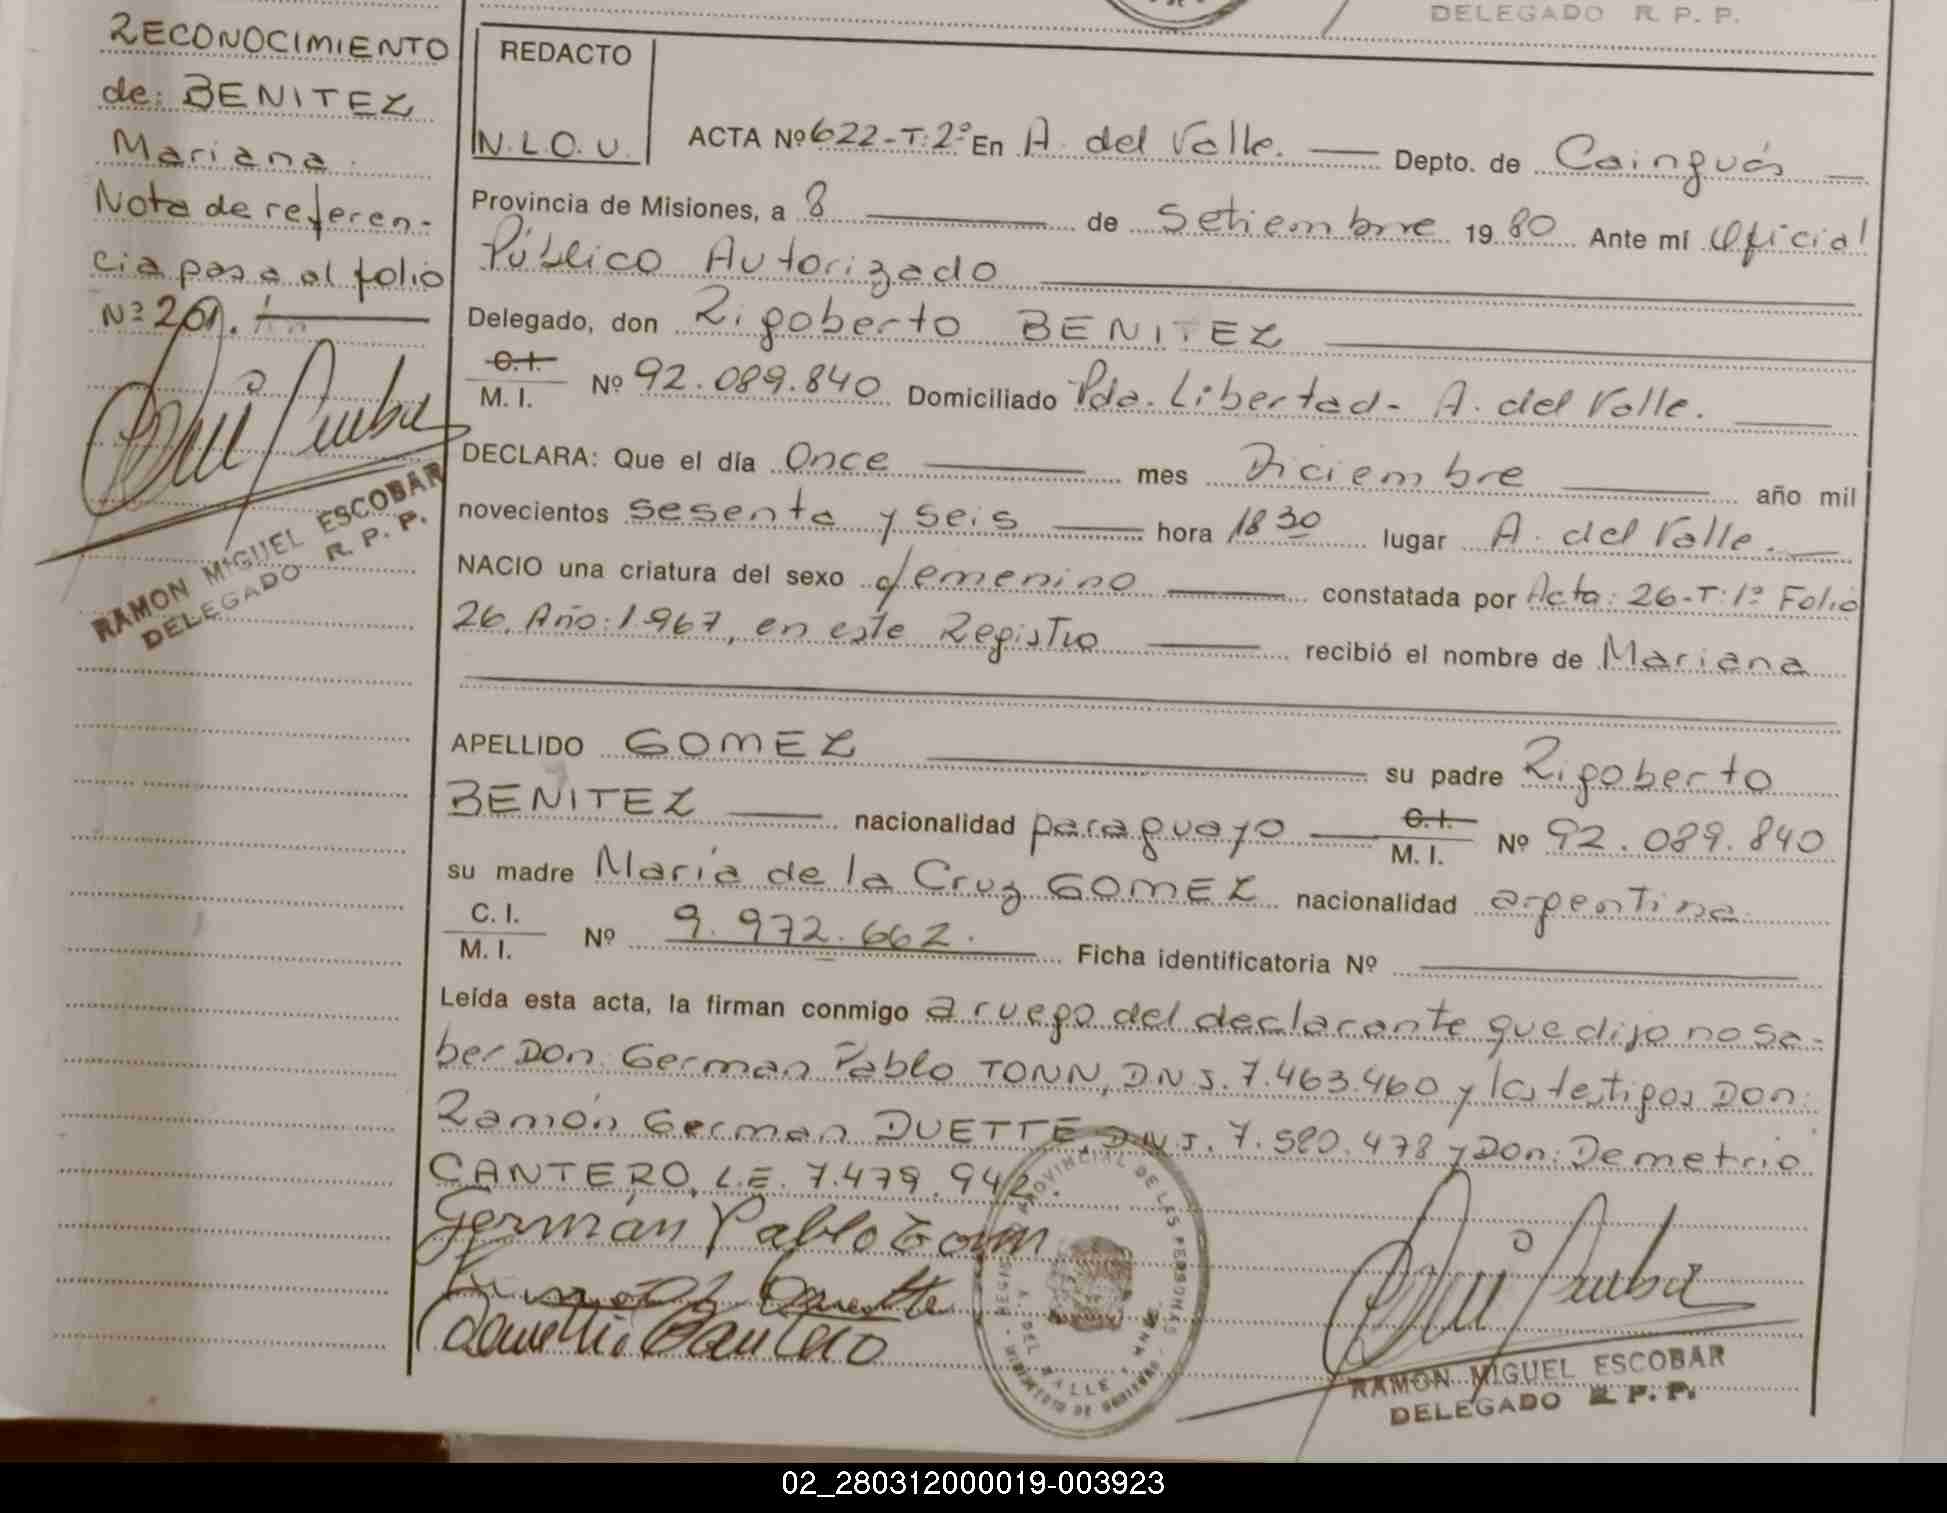 DELEGADO R. P. P.
RECONOCIMIENTO
de: BENITEZ
Mariana.
Nota de referen-
cia pasa al folio
Nº 201.
RAMON MIGUEL ESCOBAR
DELEGADO R. P. P.
REDACTO
N.L.O.U.
ACTA Nº 622-T:2º En A. del Valle. Depto. de Cainguás
Provincia de Misiones, a 8 de Setiembre 19 80 Ante mí Oficial
Público Autorizado
Delegado, don Rigoberto BENITEZ
C.I.
M. I. Nº 92.089.840 Domiciliado Pda. Libertad- A. del Valle.
DECLARA: Que el día Once mes Diciembre año mil
novecientos sesenta y seis hora 18 30 lugar A. del Valle.
NACIO una criatura del sexo femenino constatada por Acta: 26-T:1º Folio
26. Año: 1.967, en este Registro recibió el nombre de Mariana
APELLIDO GOMEZ su padre Rigoberto
BENITEZ nacionalidad paraguayo C.I. M. I. Nº 92.089.840
su madre María de la Cruz GOMEZ nacionalidad argentina
C. I.
M. I. Nº 9.972.662. Ficha identificatoria Nº
Leída esta acta, la firman conmigo a ruego del declarante que dijo no sa-
ber Don: German Pablo TONN, DNI. 7.463.460 y los testigos Don:
Ramón German DUETTE, DNI. 7.580.478 y Don: Demetrio
CANTERO, L.E. 7.479.942.
Germán Pablo Tonn
Demetrio Cantero
REGISTRO PROVINCIAL DE LAS PERSONAS
A. DEL VALLE - MNES
MINISTERIO DE GOBIERNO
RAMON MIGUEL ESCOBAR
DELEGADO R. P. P.
02_280312000019-003923